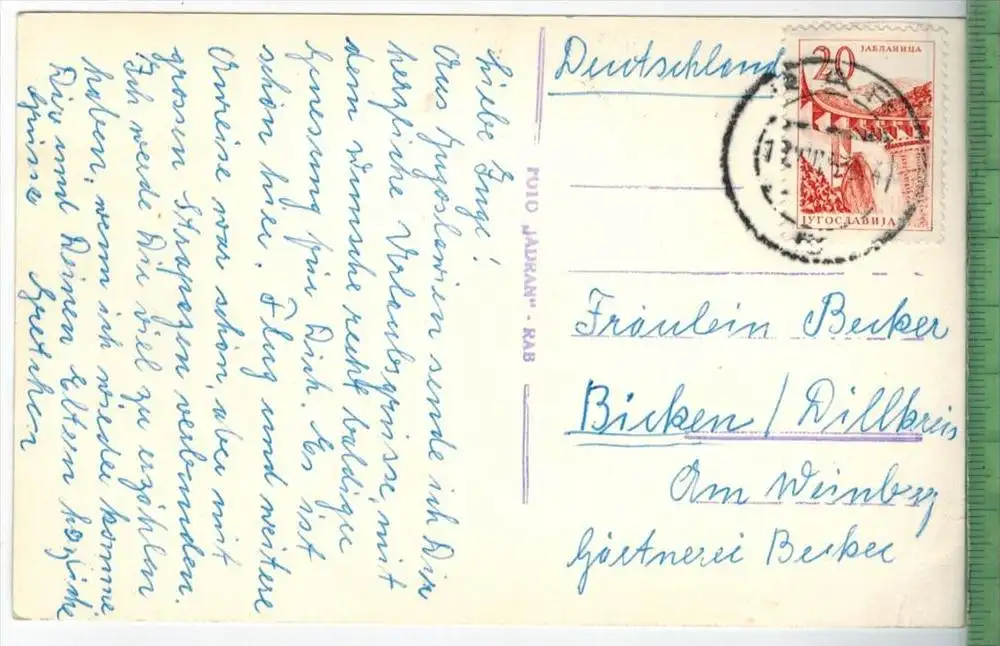 Liebe Inge!
Aus Jugoslawien sende ich Dir
herzliche Urlaubsgrüsse, mit
dem Wunsche recht baldige
Genesung für Dich. Es ist
schön hier. Flug und weitere
Anreise war schön, aber mit
grossen Strapazen verbunden.
Ich werde Dir viel zu erzählen
haben, wenn ich wieder komme
Dir und Deinen Eltern hrzliche
Grüsse Gretchen
FOTO „JADRAN" - RAB
Deutschland
20
ЈАБЛАНИЦА
JYГОСЛАВИЈА
Fräulein Becker
Bicken / Dillkreis
Am Weinberg
Gärtnerei Becker